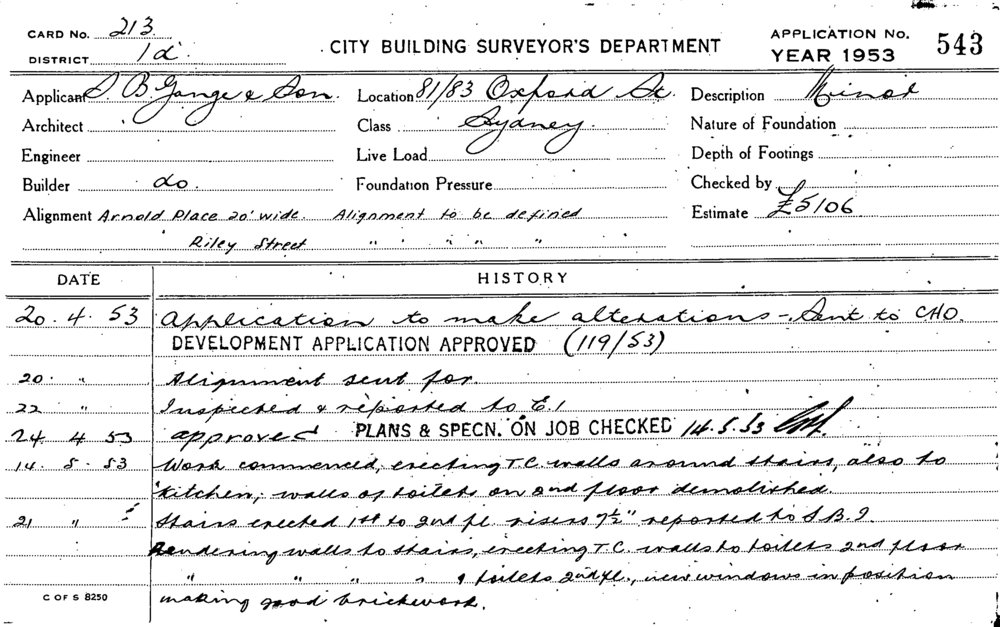 CARD No. 213
DISTRICT 1d
CITY BUILDING SURVEYOR'S DEPARTMENT
APPLICATION No. 543
YEAR 1953
Applicant S. B. Gange & Son. Location 81/83 Oxford St. Description Minor
Architect Class Sydney. Nature of Foundation
Engineer Live Load Depth of Footings
Builder do. Foundation Pressure Checked by
Alignment Arnold Place 20' wide. Alignment to be defined Estimate £5106
Riley Street " " " "
DATE HISTORY
20. 4. 53 Application to make alterations - Sent to CHO.
DEVELOPMENT APPLICATION APPROVED (119/53)
20 " Alignment sent for.
22 " Inspected & reported to E.1
24 4 53 approved PLANS & SPECN. ON JOB CHECKED 14.5.53
14. 5. 53 Work commenced, erecting T.C. walls around stairs, also to
kitchen, walls of toilets on 2nd floor demolished.
21 " Stairs erected 1st to 2nd fl. risers 7½" reported to S.B.I.
Rendering walls to stairs, erecting T.C. walls to toilets 2nd floor
" " " " & toilets 2nd fl., new windows in position
C OF S 8250 making good brickwork.